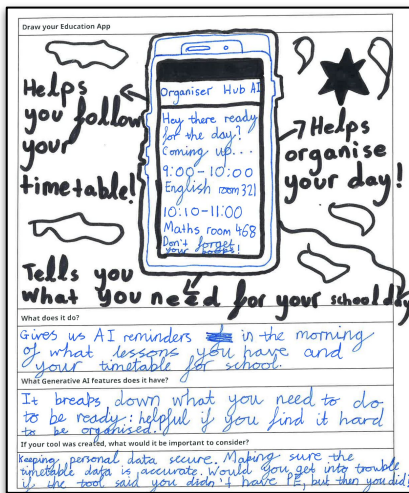 Draw your Education App
Helps
you follow
your
timetable!
Organiser Hub AI
Hey there ready
for the day?
Coming up...
9:00-10:00
English room 321
10:10-11:00
Maths room 468
Don't forget
your books!
Helps
organise
your day!
Tells you
what you need for your school day
What does it do?
Gives us AI reminders in the morning
of what lessons you have and
your timetable for school.
What Generative AI features does it have?
It breaks down what you need to do
to be ready: helpful if you find it hard
to be organised.
If your tool was created, what would it be important to consider?
Keeping personal data secure. Making sure the
timetable data is accurate. Would you get into trouble
if the tool said you didn't have PE, but then you did?